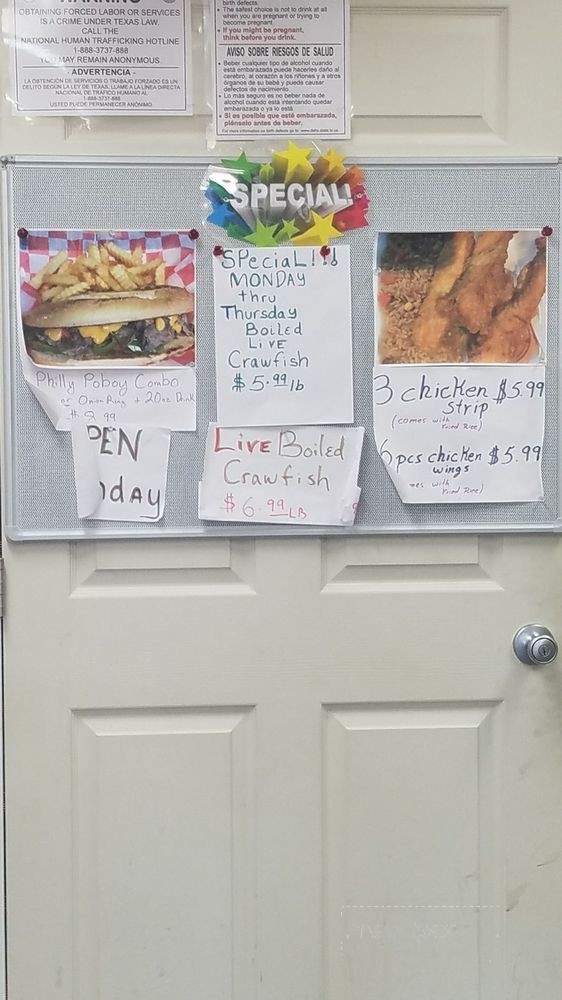 OBTAINING FORCED LABOR OR SERVICES
IS A CRIME UNDER TEXAS LAW.
CALL THE
NATIONAL HUMAN TRAFFICKING HOTLINE
1-888-3737-888
YOU MAY REMAIN ANONYMOUS.
- ADVERTENCIA -
LA OBTENCIÓN DE SERVICIOS O TRABAJO FORZADO ES UN
DELITO SEGÚN LA LEY DE TEXAS. LLAME A LA LÍNEA DIRECTA
NACIONAL DE TRÁFICO HUMANO AL
1-888-3737-888
USTED PUEDE PERMANECER ANÓNIMO.
birth defects.
• The safest choice is not to drink at all
when you are pregnant or trying to
become pregnant.
• If you might be pregnant,
think before you drink.
AVISO SOBRE RIESGOS DE SALUD
• Beber cualquier tipo de alcohol cuando
está embarazada puede hacerles daño al
cerebro, al corazón a los riñones y a otros
órganos de su bebé y puede causar
defectos de nacimiento.
• Lo más seguro es no beber nada de
alcohol cuando está intentando quedar
embarazada o ya lo está.
• Si es posible que esté embarazada,
piénselo antes de beber.
SPECIAL!
SPeciaL!!!
MONDAY
thru
Thursday
Boiled
LiVE
Crawfish
$5.99 lb
Philly Poboy Combo
or Onion Ring + 20oz Drink
99
PEN
day
LivE Boiled
Crawfish
$6.99 LB
3 chicken $5.99
Strip
(comes with
Fried Rice)
6 pcs chicken $5.99
wings
es with
Fried Rice)